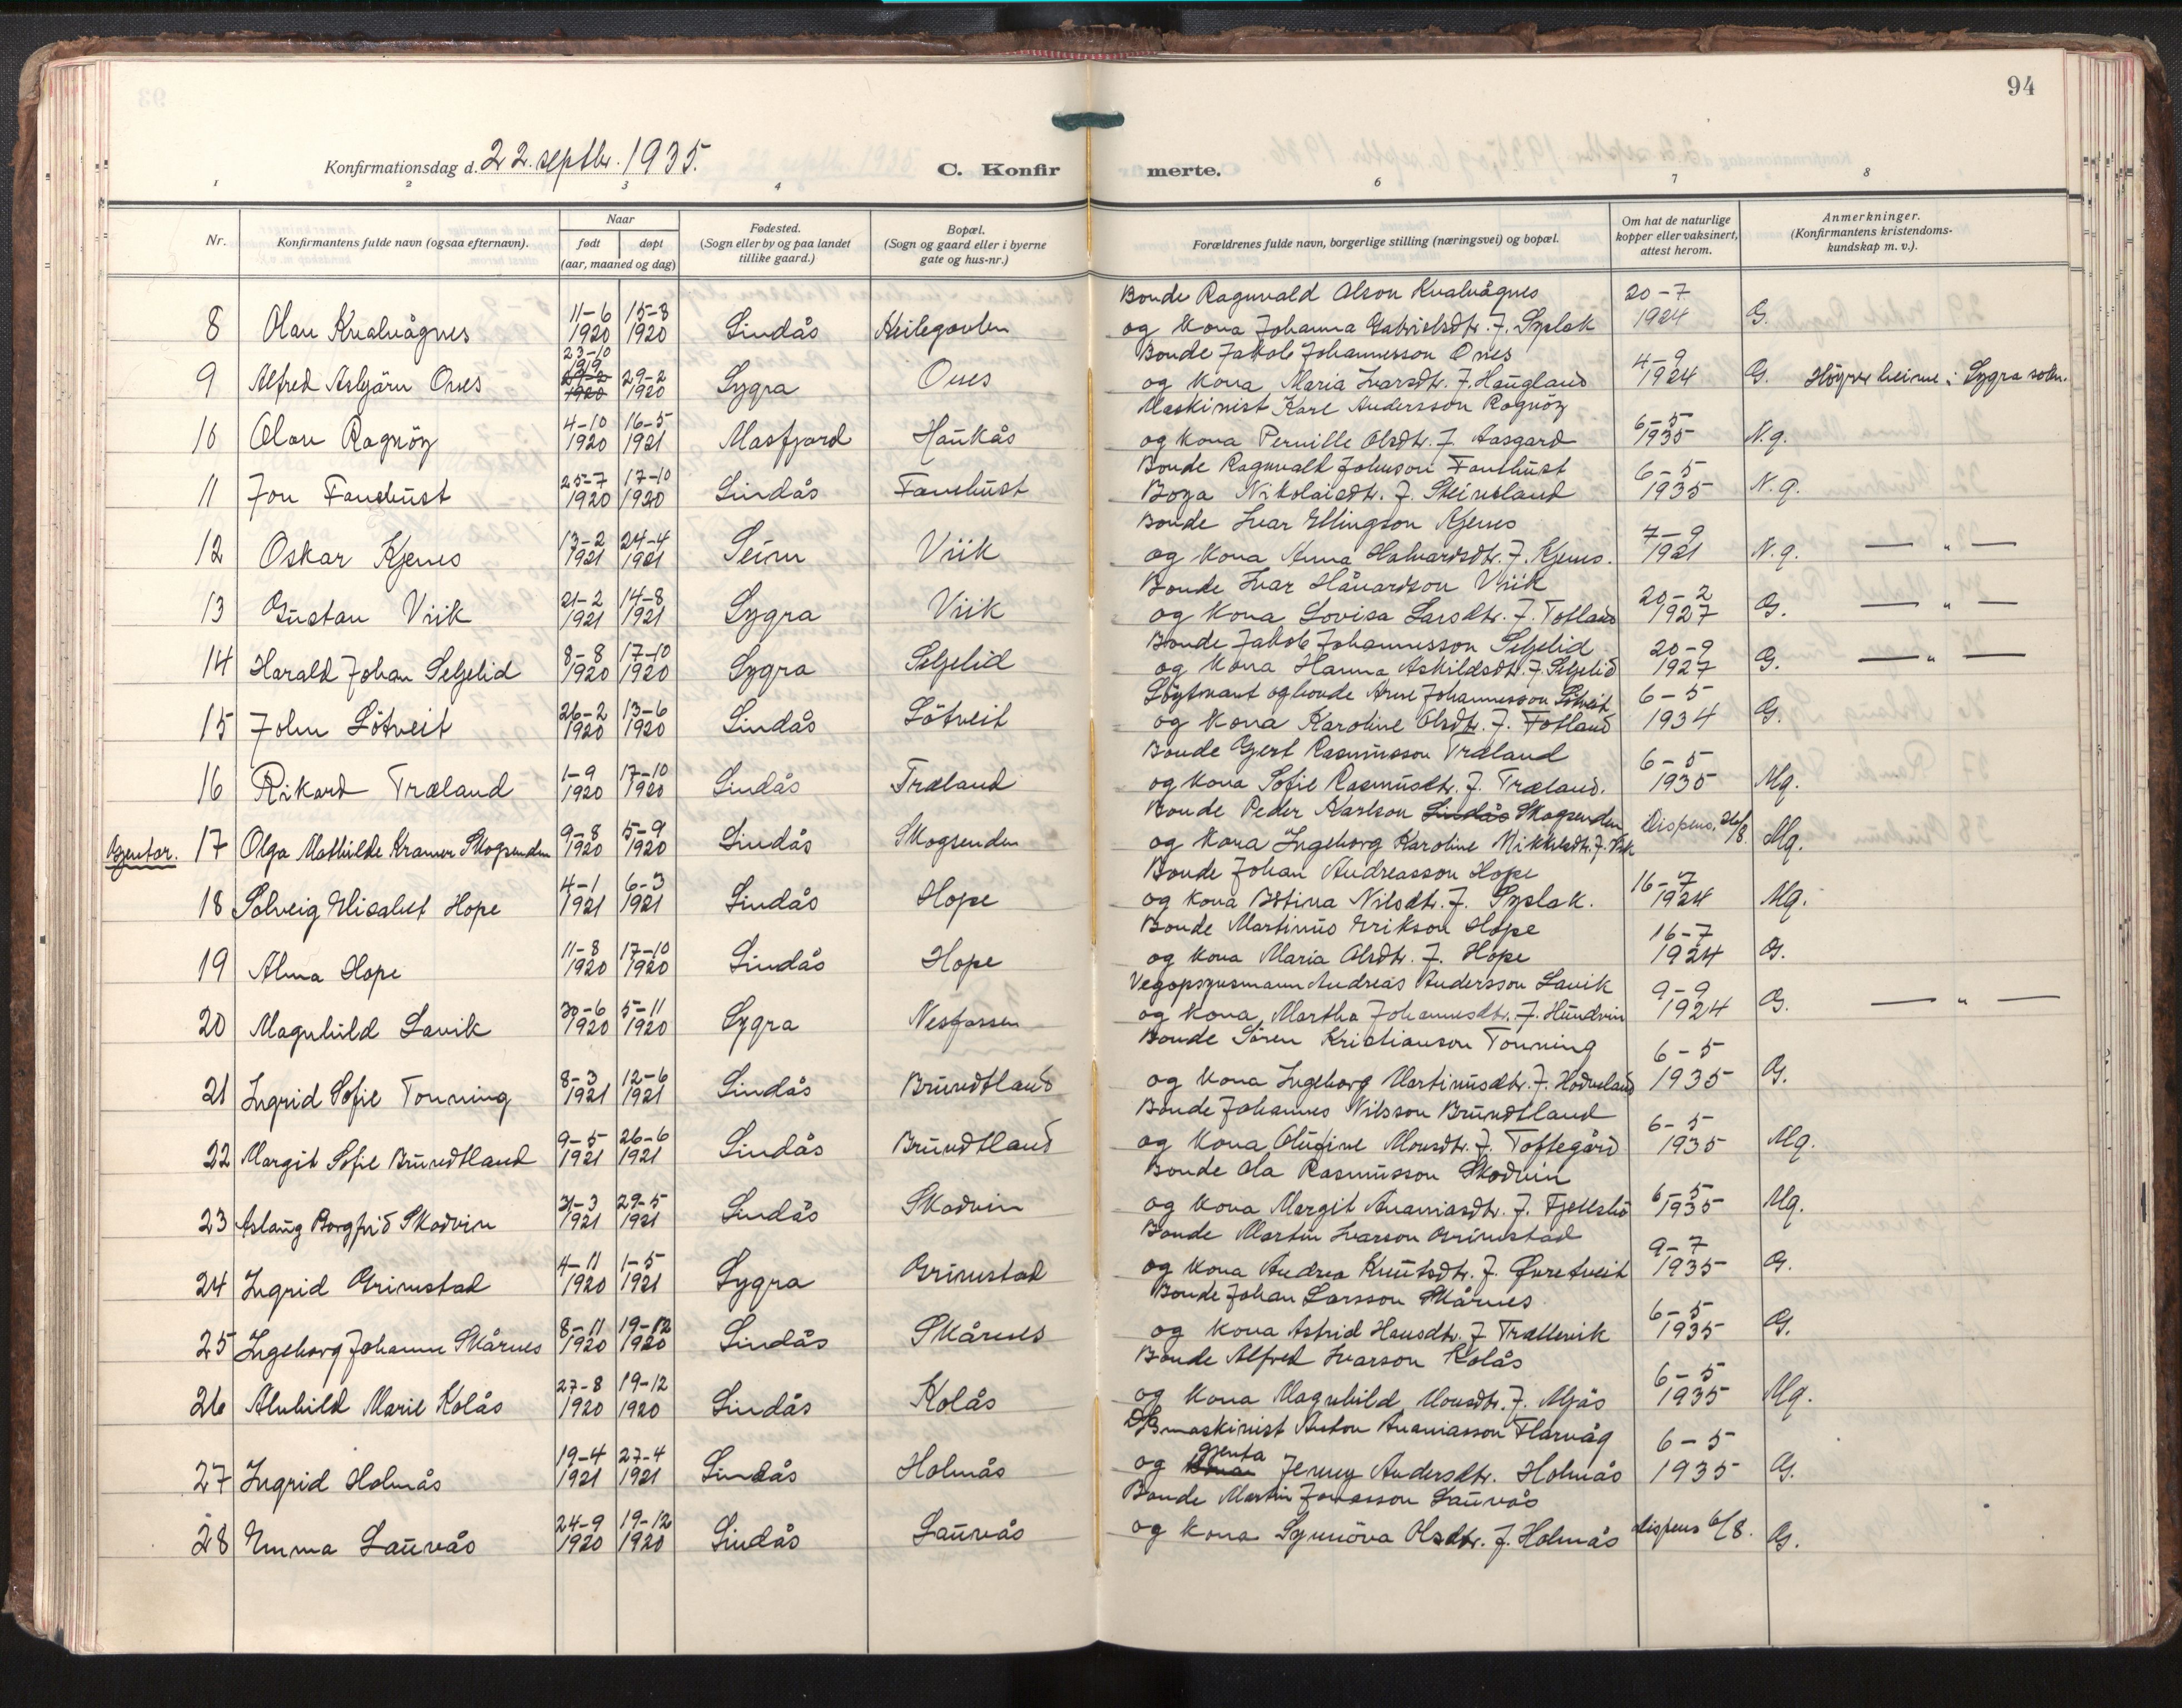 94
Konfirmationsdag d. 22. septbr. 1935.
C. Konfirmerte.
1 2 3 4 6 7 8
Nr.
Konfirmantens fulde navn (ogsaa efternavn).
Naar
født døpt
(aar, maaned og dag)
Fødested.
(Sogn eller by og paa landet
tillike gaard.)
Bopæl.
(Sogn og gaard eller i byerne
gate og hus-nr.)
Forældrenes fulde navn, borgerlige stilling (næringsvei) og bopæl.
Om hat de naturlige
kopper eller vaksinert,
attest herom.
Anmerkninger.
(Konfirmantens kristendoms-
kundskap m. v.).
Bonde Ragnvald Olson Kvalvågnes 20-7
8 Olav Kvalvågnes 11-6 1920 15-8 1920 Lindås og kona Johanna Gabrielsdtr. f. Syslak 1924 G.
Bonde Jakob Johannesson Ones 4-9
9 Alfred Asbjörn Ones 23-10 1919 29-2 1920 Lygra Ones og kona Maria Ivarsdtr. f. Haugland 1924 G. Höyrer heime i Lygra sokn.
Maskinist Karl Andersson Rognöy 6-5
10 Olav Rognöy 4-10 1920 16-5 1921 Masfjord Haukås og kona Pernille Olsdtr. f. Aasgard 1935 N.g.
Bonde Ragnvald Johnson Fanebust 6-5
11 Jon Fanebust 25-7 1920 17-10 1920 Lindås Fanebust Boga Nikolaisdtr. f. Steinsland 1935 N.g.
Bonde Ivar Ellingson Kjenes 7-9
12 Oskar Kjenes 13-2 1921 24-4 1921 Seim Viik og kona Anna Halvardsdtr. f. Kjenes. 1921 N.g. — " —
Bonde Ivar Håvardson Viik 20-2
13 Gustav Viik 21-2 1921 14-8 1921 Lygra Viik og kona Lovisa Larsdtr. f. Totland 1927 G. — " —
Bonde Jakob Johannesson Seljelid 20-9
14 Harald Johan Seljelid 8-8 1920 17-10 1920 Lygra Seljelid og kona Hanna Askildsdtr. f. Seljelid 1927 G. — " —
Löytnant og bonde Arne Johannesson Lötveit 6-5
15 John Lötveit 26-2 1920 13-6 1920 Lindås Lötveit og kona Karoline Olsdtr. f. Totland 1934 G.
Bonde Gjert Rasmusson Træland 6-5
16 Rikard Træland 1-9 1920 17-10 1920 Lindås Træland og kona Sofie Rasmusdtr. f. Træland. 1935 Mg.
Bonde Peder Karlson Lindås Skogsenden
Gjentor. 17 Olga Mathilde Kramer Skogsenden 9-8 1920 5-9 1920 Lindås Skogsenden og kona Ingeborg Karoline Mikkelsdtr. f. Vik Dispens. 26/8. Mg.
Bonde Johan Andreasson Hope 16-7
18 Solveig Elisabet Hope 4-1 1921 6-3 1921 Lindås Hope og kona Nilsdtr. f. Syslak. 1924 Mg.
Bonde Martinus Erikson Hope 16-7
19 Alma Hope 11-8 1920 17-10 1920 Lindås Hope og kona Maria Olsdtr. f. Hope 1924 G.
Vegopsynsmann Andreas Andersson Lavik 9-9
20 Magnhild Lavik 30-6 1920 5-11 1920 Lygra Nesfossen og kona Martha Johannesdtr. f. Hundvin 1924 G. — " —
Bonde Sören Kristianson Tonning 6-5
21 Ingrid Sofie Tonning 8-3 1921 12-6 1921 Lindås Brundtland og kona Ingeborg Martinusdtr. f. Hodneland 1935 G.
Bonde Johannes Nilsson Brundtland 6-5
22 Margit Sofie Brundtland 9-5 1921 26-6 1921 Lindås Brundtland og kona Olufine Monsdtr. f. Toftegård 1935 Mg.
Bonde Ola Rasmusson Skodvin 6-5
23 Aslaug Borgfrid Skodvin 31-3 1921 29-5 1921 Lindås Skodvin og kona Margit Ananiasdtr. f. Fjellsbö 1935 Mg.
Bonde Martin Ivarson Grimstad 9-7
24 Ingrid Grimstad 4-11 1920 1-5 1921 Lygra Grimstad og kona Andrea Knutsdtr. f. Øvretveit 1935 G.
Bonde Johan Larsson Skårnes 6-5
25 Ingeborg Johanne Skårnes 8-11 1920 19-12 1920 Lindås Skårnes og kona Astrid Hansdtr. f. Trællevik 1935 G.
Bonde Alfred Ivarson Kolås 6-5
26 Alvhild Marie Kolås 27-8 1920 19-12 1920 Lindås Kolås og kona Magnhild Monsdtr. f. Mjös 1935 Mg.
maskinist Anton Ananiasson Flarvåg 6-5
27 Ingrid Holmås 19-4 1921 27-4 1921 Lindås Holmås og kona gjenta Jenny Andersdtr. Holmås 1935 G.
Bonde Martin Jonasson Lauvås
28 Emma Lauvås 24-9 1920 19-12 1920 Lindås Lauvås og kona Synnöva Olsdtr. f. Holmås dispens 6/8. G.